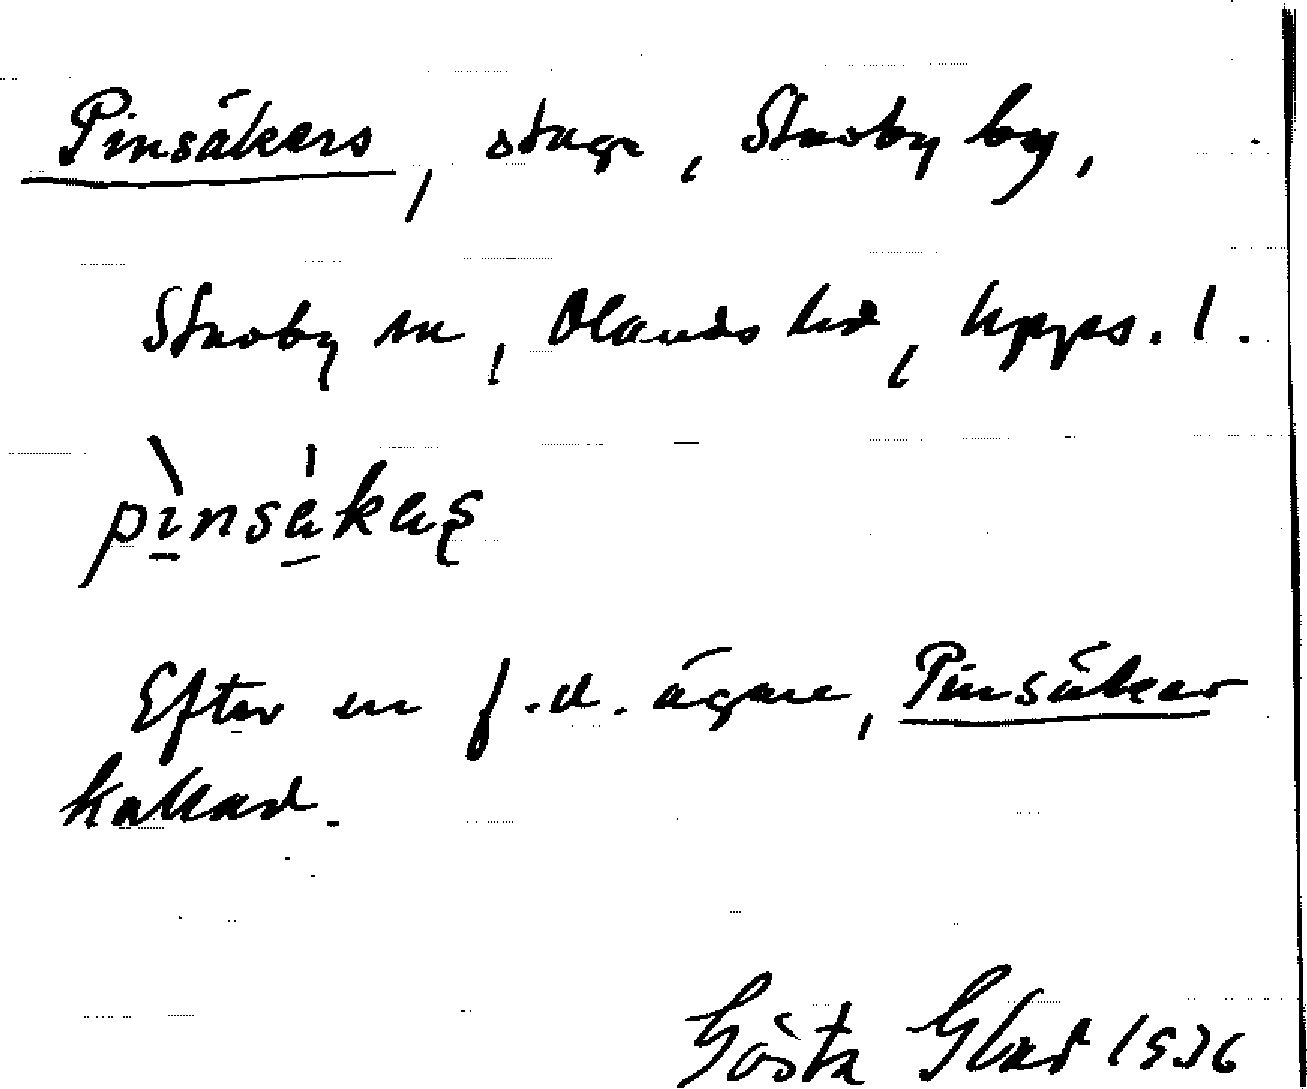 Pinsåkers, stuga, Stavby by,
Stavby sn, Olands hd, Upps. l.
pìnsåkaş
Efter en f.d. ägare, Pinsåker
kallad.
Gösta Glad 1936